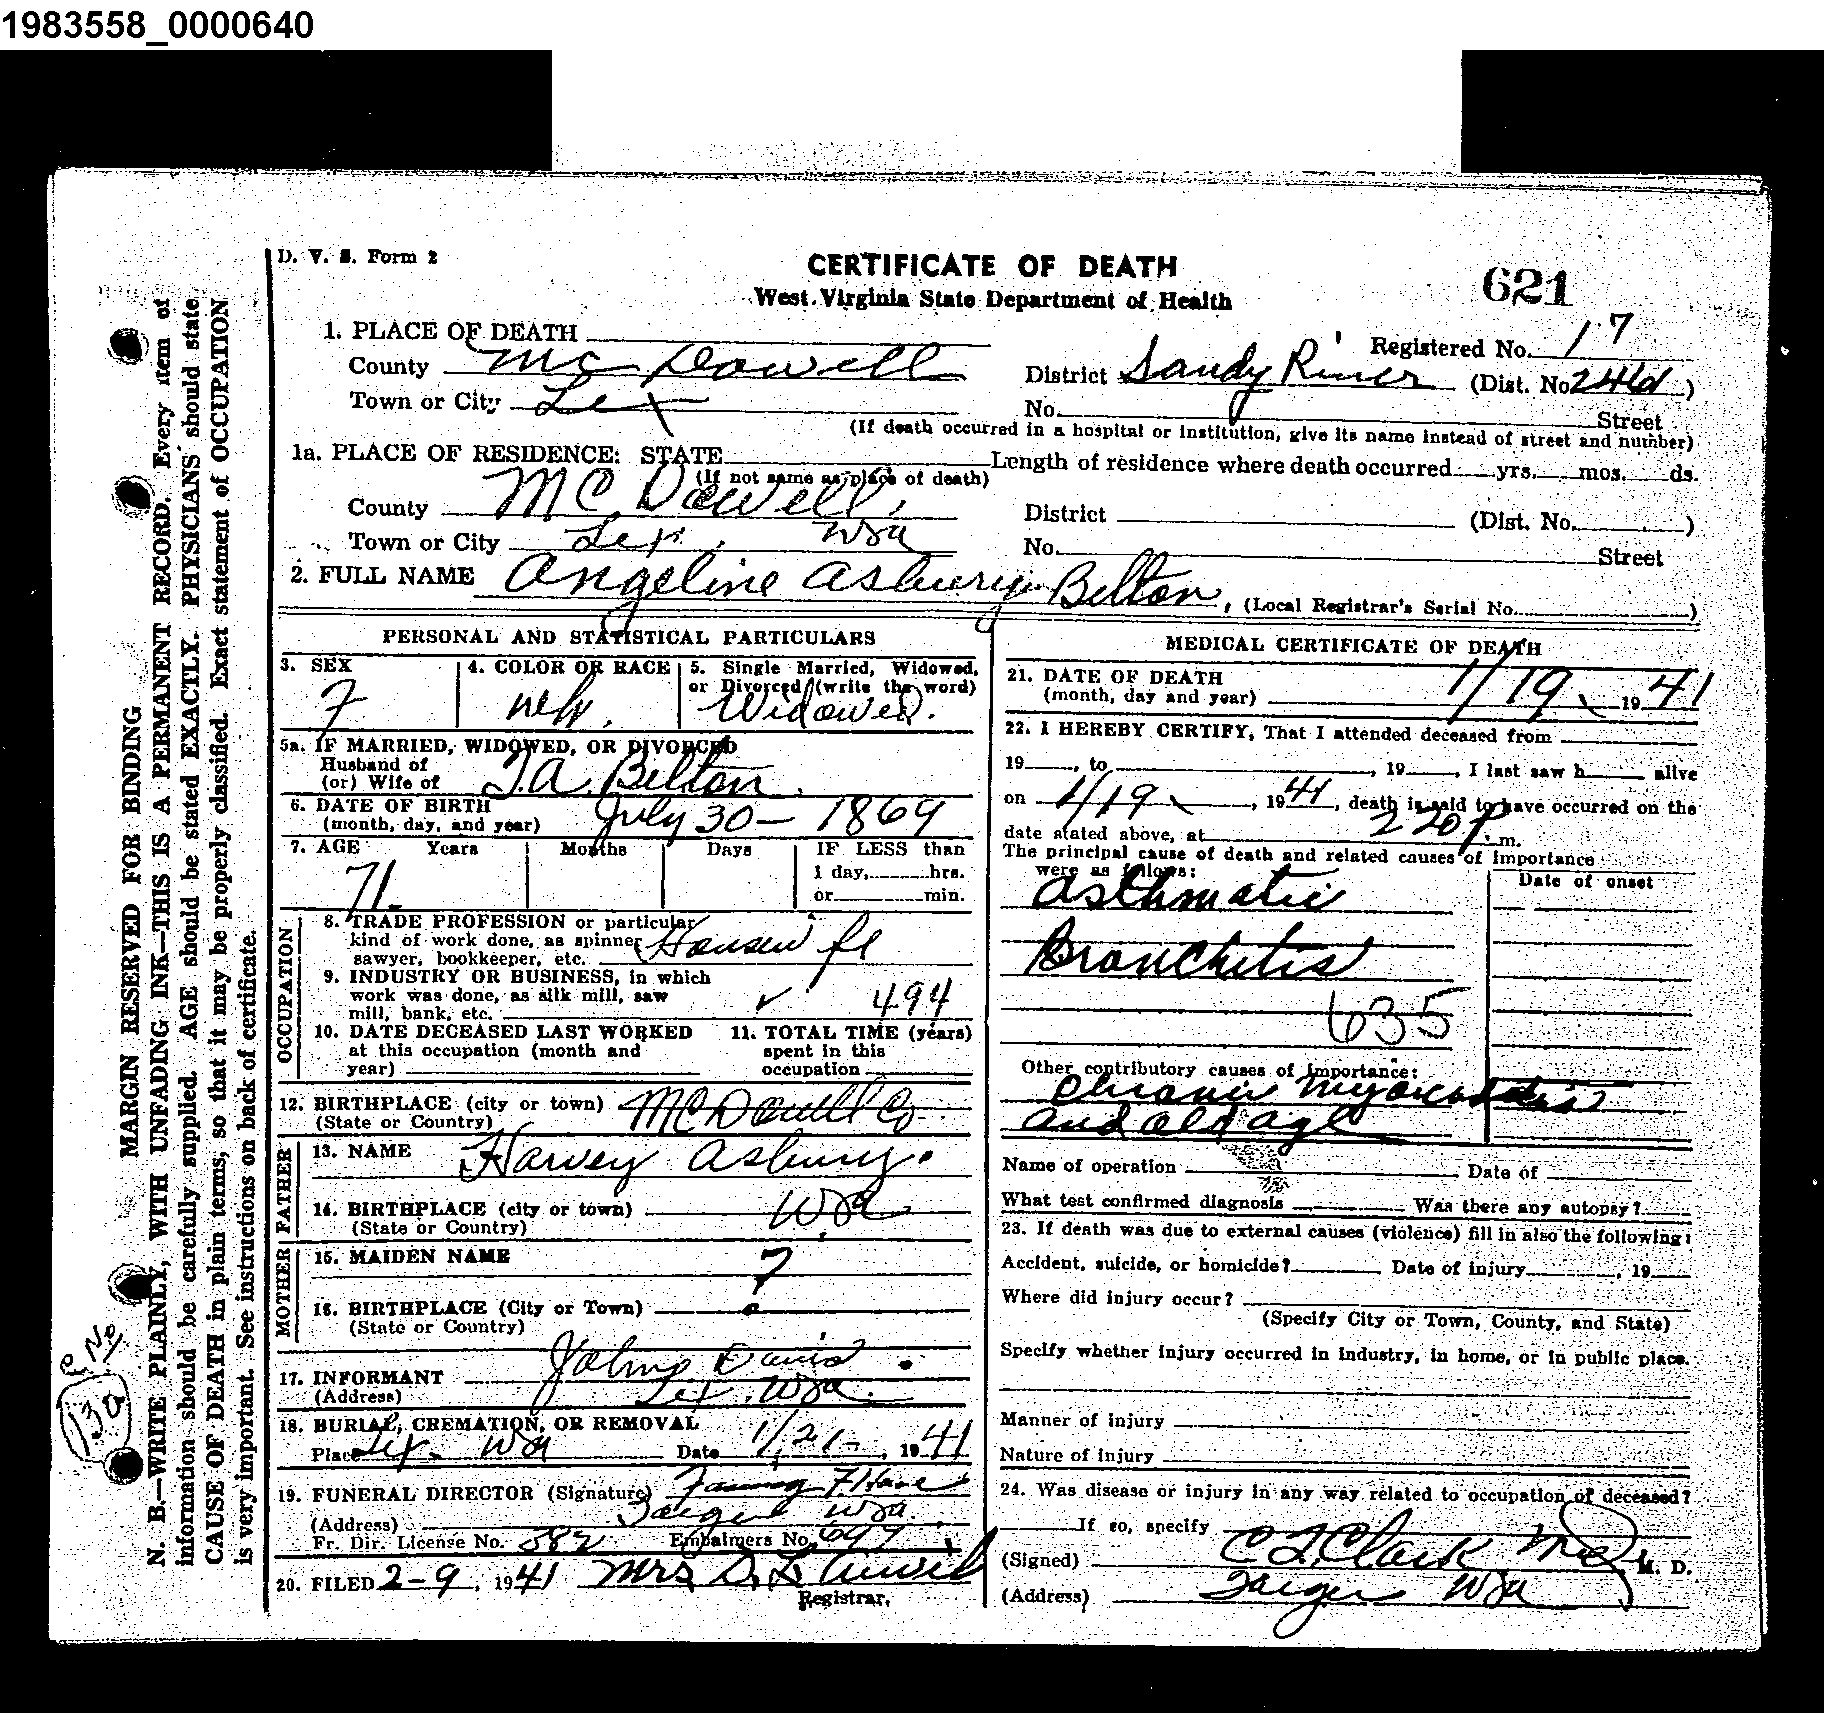 1983558_0000640
D. V. S. Form 2
CERTIFICATE OF DEATH
West Virginia State Department of Health
621
1. PLACE OF DEATH
Registered No. 17
County McDowell
District Sandy River (Dist. No. 246d)
Town or City Lex
No. Street
(If death occurred in a hospital or institution, give its name instead of street and number)
1a. PLACE OF RESIDENCE: STATE
(If not same as place of death)
Length of residence where death occurred yrs. mos. ds.
County McDowell,
District (Dist. No. )
Town or City Lex, Wva
No. Street
2. FULL NAME Angeline Asbury Belton, (Local Registrar's Serial No. )
PERSONAL AND STATISTICAL PARTICULARS
3. SEX
F
4. COLOR OR RACE
5. Single Married, Widowed,
or Divorced (write the word)
Widowed.
5a. IF MARRIED, WIDOWED, OR DIVORCED
Husband of
(or) Wife of Belton
6. DATE OF BIRTH
(month, day, and year) July 30 - 1869
7. AGE Years Months Days IF LESS than
1 day, hrs.
or min.
71
OCCUPATION
8. TRADE PROFESSION or particular
kind of work done, as spinner,
sawyer, bookkeeper, etc.
9. INDUSTRY OR BUSINESS, in which
work was done, as silk mill, saw
mill, bank, etc. ✓ 494
10. DATE DECEASED LAST WORKED
at this occupation (month and
year)
11. TOTAL TIME (years)
spent in this
occupation
12. BIRTHPLACE (city or town) McDowell Co
(State or Country)
FATHER
13. NAME Harvey Asbury.
14. BIRTHPLACE (city or town) Wva
(State or Country)
MOTHER
15. MAIDEN NAME ?
16. BIRTHPLACE (City or Town)
(State or Country)
17. INFORMANT Davis
(Address) Lex, Wva.
18. BURIAL, CREMATION, OR REMOVAL
Place Lex. Wva Date 1/21-, 1941
19. FUNERAL DIRECTOR (Signature)
(Address) Iaeger Wva.
Fr. Dir. License No. 382 Embalmers No. 697
20. FILED 2-9, 1941 Mrs D. L.
Registrar.
MEDICAL CERTIFICATE OF DEATH
21. DATE OF DEATH
(month, day and year) 1/19, 1941
22. I HEREBY CERTIFY, That I attended deceased from
19 , to , 19 , I last saw h alive
on 1/19, 1941, death is said to have occurred on the
date stated above, at 220 P. m.
The principal cause of death and related causes of importance
were as follows:
Date of onset
Asthmatic
Bronchitis
635
Other contributory causes of importance:
Chronic Myocarditis
and old age
Name of operation Date of
What test confirmed diagnosis Was there any autopsy?
23. If death was due to external causes (violence) fill in also the following:
Accident, suicide, or homicide? Date of injury , 19
Where did injury occur?
(Specify City or Town, County, and State)
Specify whether injury occurred in industry, in home, or in public place.
Manner of injury
Nature of injury
24. Was disease or injury in any way related to occupation of deceased?
If so, specify
(Signed) Clark M. D.
(Address) Iaeger Wva
MARGIN RESERVED FOR BINDING
N. B.—WRITE PLAINLY, WITH UNFADING INK—THIS IS A PERMANENT RECORD. Every item of
information should be carefully supplied. AGE should be stated EXACTLY. PHYSICIANS should state
CAUSE OF DEATH in plain terms, so that it may be properly classified. Exact statement of OCCUPATION
is very important. See instructions on back of certificate.